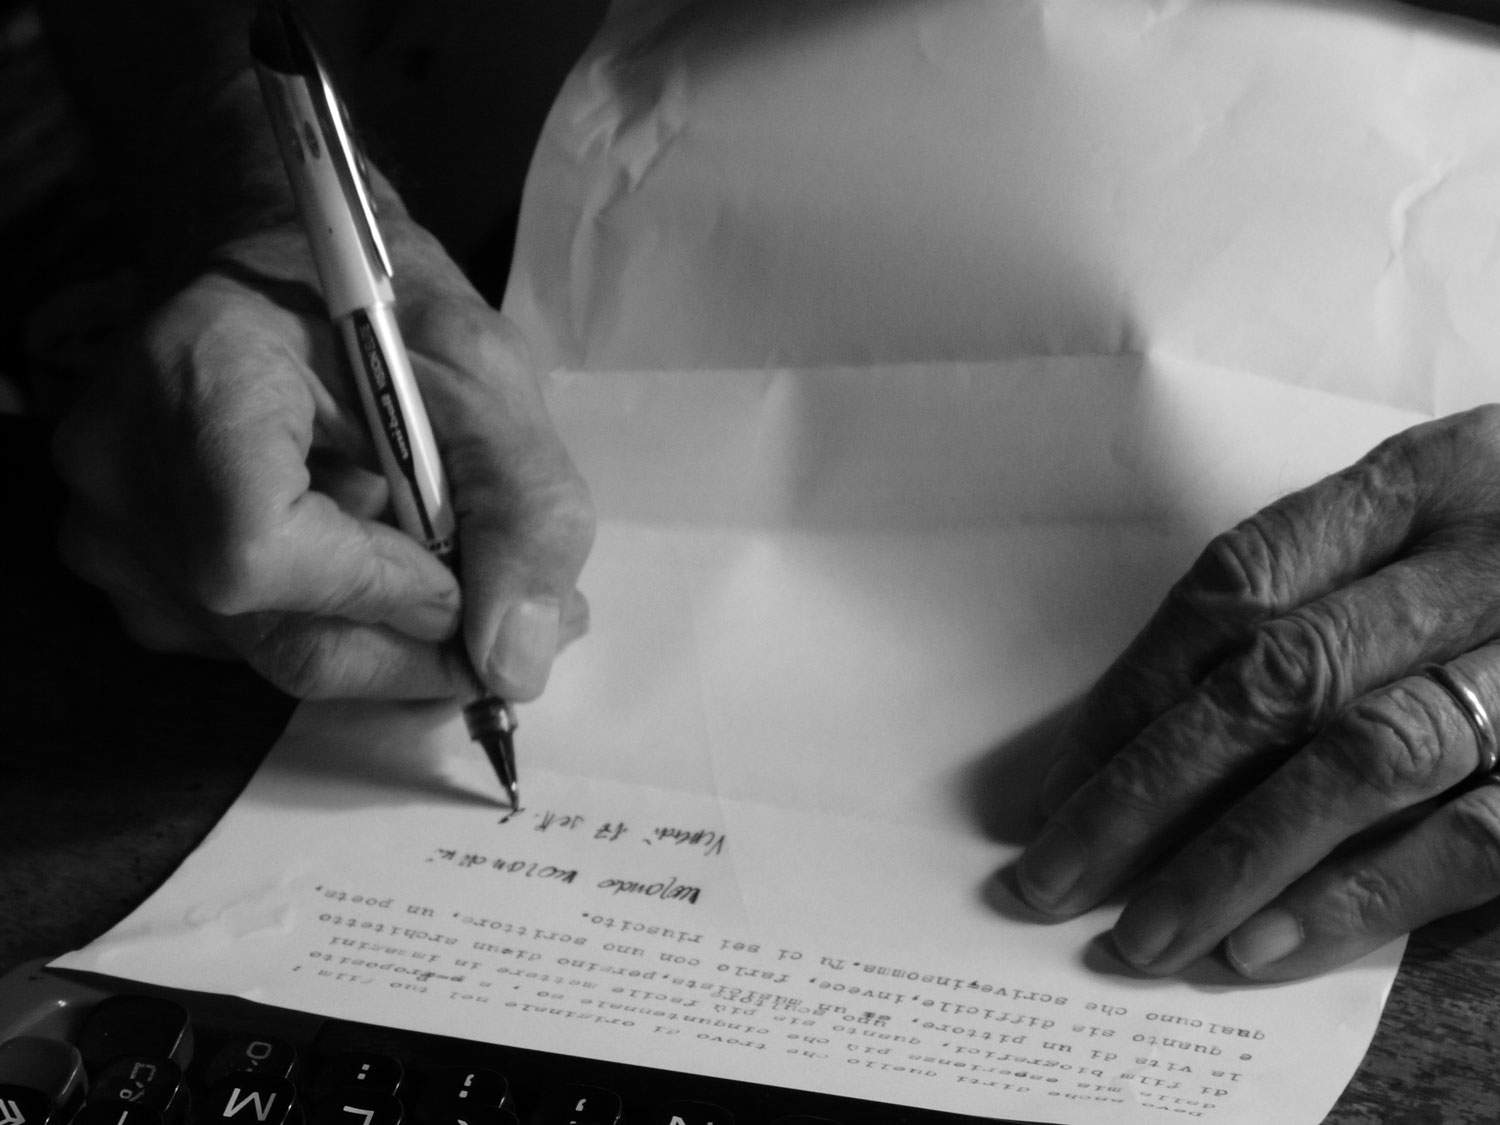 Devo anche dirti quello che trovo di originale nel tuo film ;
dalla mia esperienza più che cinquntennale so , a proposito
di film biografici, quanto sia più facile mettere in immagini
la vita di un pittore, uno scultore, un musicista,persino di un architetto
e quanto sia difficile,invece, farlo con uno scrittore, un poeta,
qualcuno che scrive,insomma.Tu ci sei riuscito.
Venerdì 17 sett. 2
uni-ball VISION ELITE
M
L
:
;
,